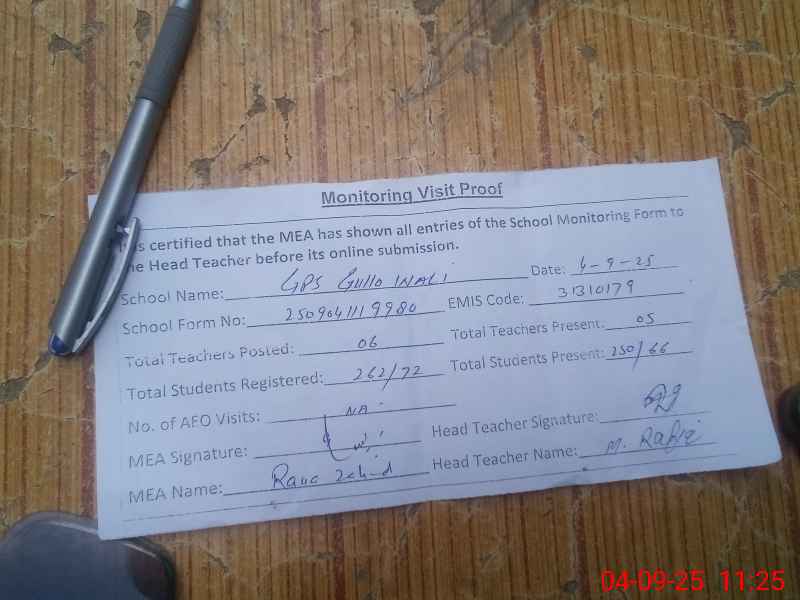 Monitoring Visit Proof
is certified that the MEA has shown all entries of the School Monitoring Form to
the Head Teacher before its online submission.
School Name: GPS Gullo WALI Date: 4-9-25
School Form No: 2509041119980 EMIS Code: 31310179
Total Teachers Posted: 06 Total Teachers Present: 05
Total Students Registered: 262/72 Total Students Present: 250/66
No. of AFO Visits: NA
MEA Signature: Head Teacher Signature:
MEA Name: Rana Zahid Head Teacher Name: M. Rafiq
04-09-25 11:25